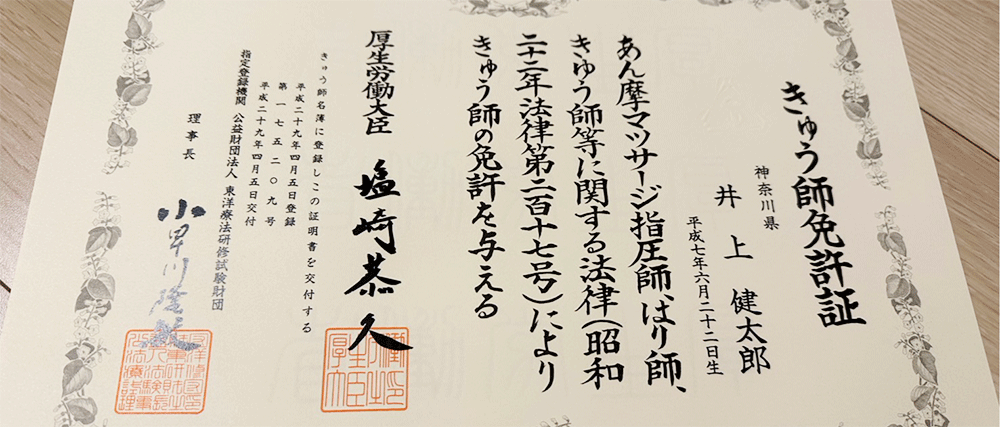 きゅう師免許証
神奈川県
井上健太郎
平成七年六月二十二日生
あん摩マツサージ指圧師、はり師、
きゆう師等に関する法律(昭和
二十二年法律第二百十七号)により
きゅう師の免許を与える
厚生労働大臣 塩崎恭久
きゅう師名簿に登録しこの証明書を交付する
平成二十九年四月五日登録
第一七五二〇九号
平成二十九年四月五日交付
指定登録機関 公益財団法人 東洋療法研修試験財団
理事長 小早川隆敏